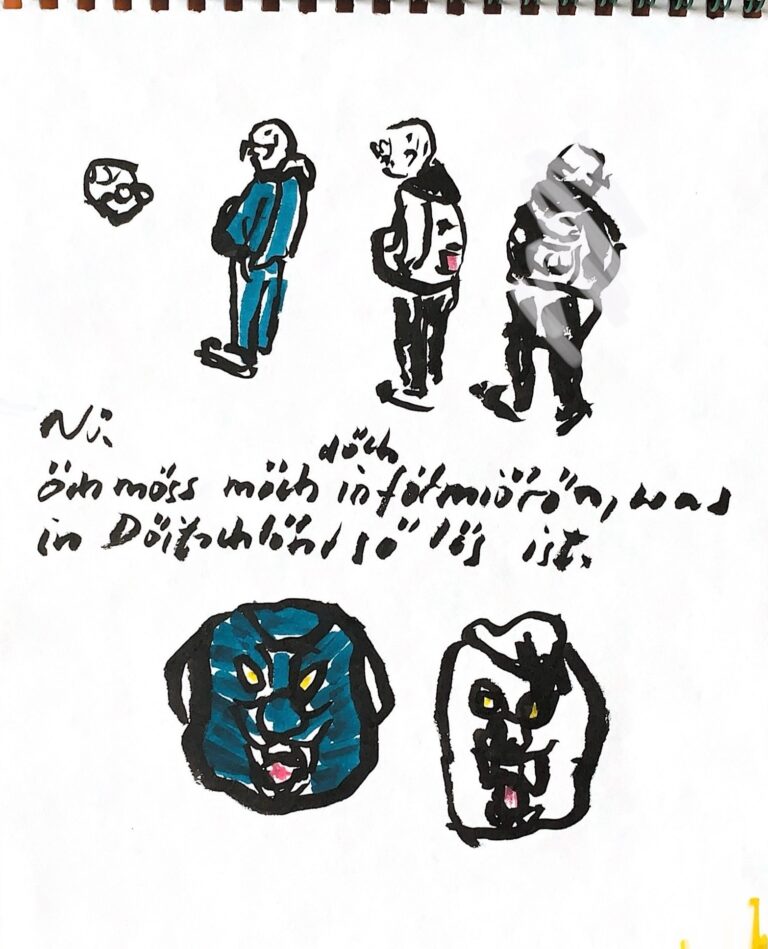 Nö.
döch
öch möss möch införmiörön, was
in Döitschlönd sö lös ist.